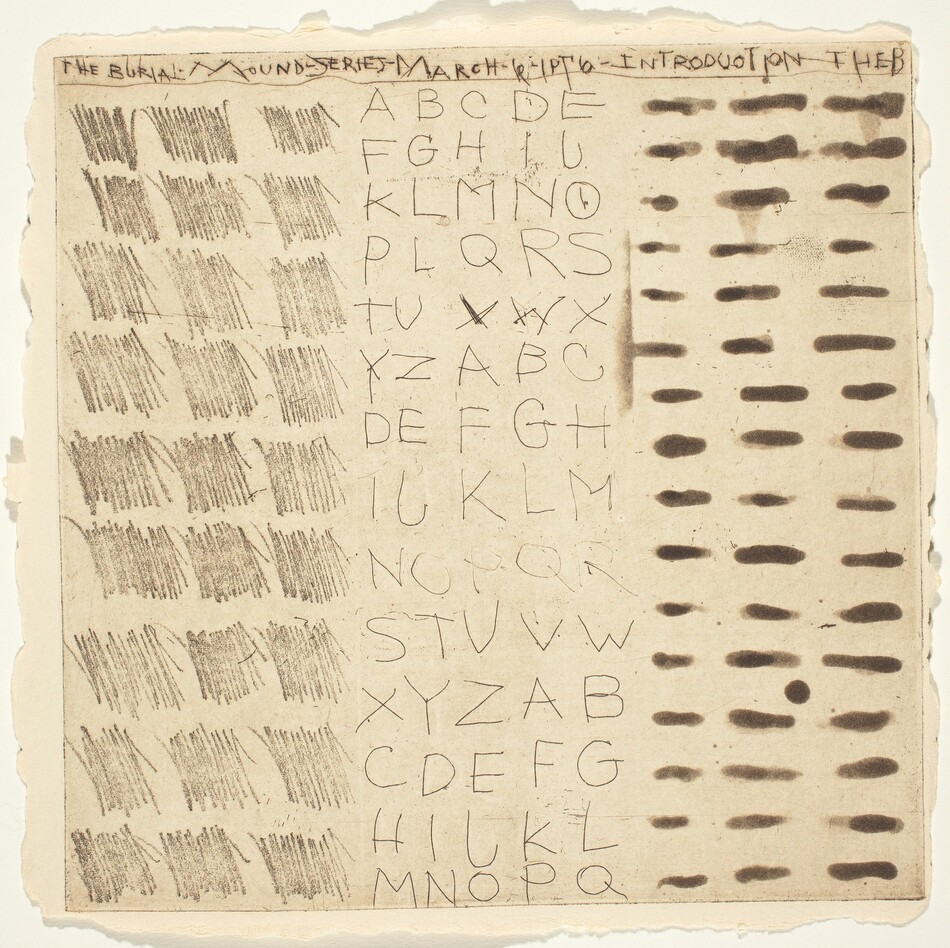 THE BURIAL MOUND-SERIES-MARCH- - INTRODUCTION THEB
A B C D E
F G H I J
K L M N O
P L Q R S
T U X W X
Y Z A B C
D E F G H
I J K L M
N O P Q R
S T U V W
X Y Z A B
C D E F G
H I J K L
M N O P Q